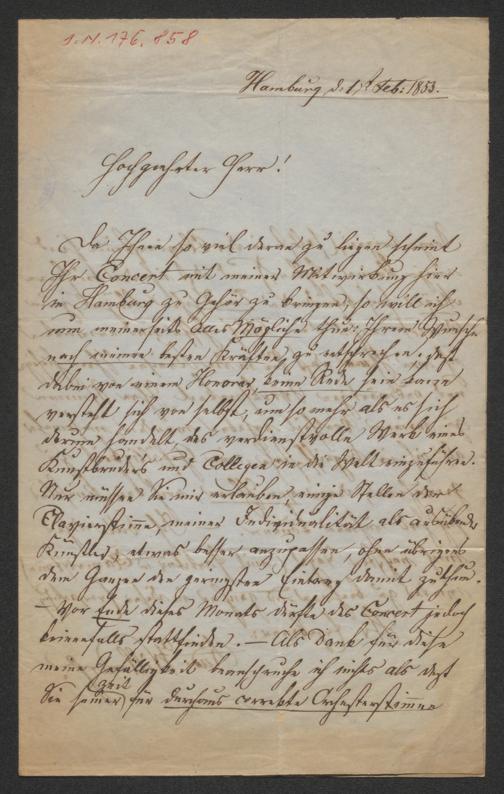 I.N. 176.858
Hamburg d. 17t Feb: 1853.
Hochgeehrter Herr!
Da Ihnen so viel daran zu liegen scheint
Ihr Concert mit meiner Mitwirkung hier
in Hamburg zu Gehör zu bringen, so will ich
nun meinerseits das Mögliche thun: Ihrem Wunsche
nach meinen besten Kräften zu entsprechen, daß
dabei von einem Honorar keine Rede sein kann
versteht sich von selbst, um so mehr als es sich
darum handelt, das verdienstvolle Werk eines
Kunstbruders und Collegen in die Welt einzuführen.
Nur müssen Sie mir erlauben, einige Stellen der
Clavierstimme, meiner Individualität als ausübender
Künstler, etwas besser anzupassen, ohne übrigens
dem Ganzen den geringsten Eintrag damit zu thun.
— Vor Ende dieses Monats dürfte das Concert jedoch
keinenfalls stattfinden. — Als Dank für diese
meine Gefälligkeit beanspruche ich nichts als daß
Sie für durchaus correkte Orchesterstimmen